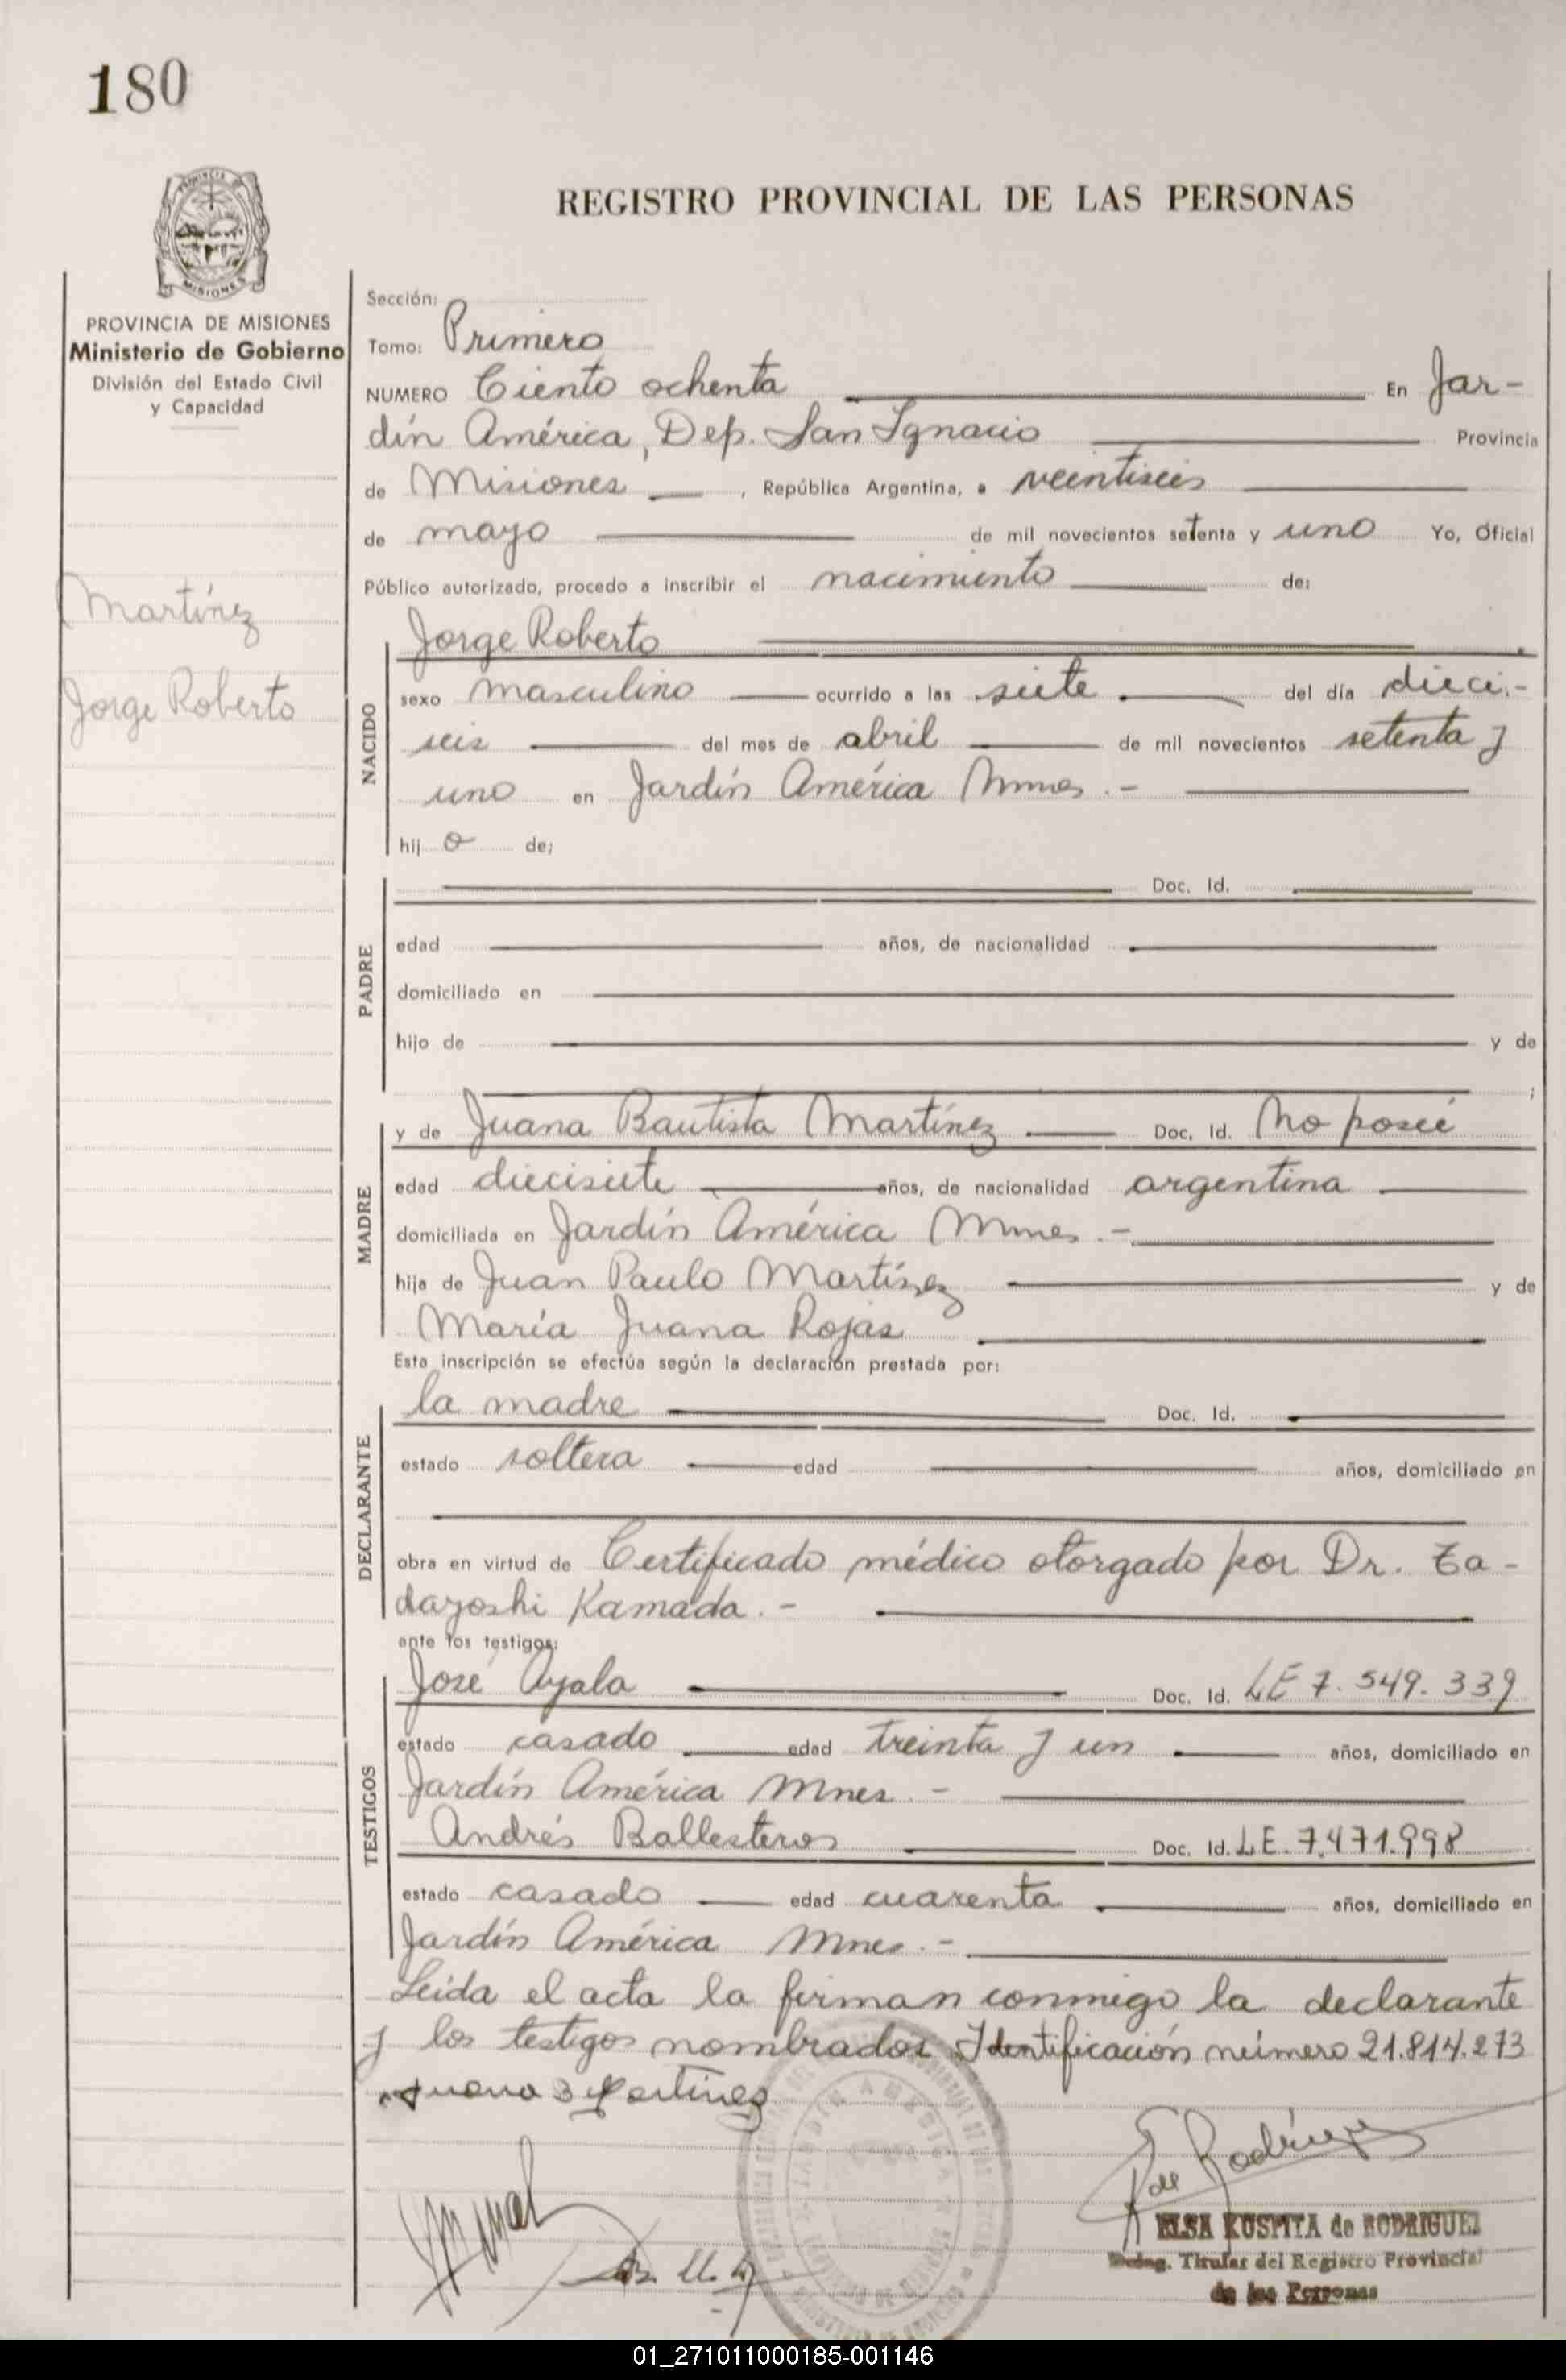 180
REGISTRO PROVINCIAL DE LAS PERSONAS
PROVINCIA DE MISIONES
Ministerio de Gobierno
División del Estado Civil
y Capacidad
Martínez
Jorge Roberto
Sección:
Tomo: Primero
NUMERO Ciento ochenta En Jar-
dín América, Dep. San Ignacio Provincia
de Misiones, República Argentina, a veintiseis
de mayo de mil novecientos setenta y uno Yo, Oficial
Público autorizado, procedo a inscribir el nacimiento de:
NACIDO
Jorge Roberto
sexo masculino ocurrido a las siete del día dieci-
seis del mes de abril de mil novecientos setenta y
uno en Jardín América Mnes.-
hijo de;
PADRE
Doc. Id.
edad años, de nacionalidad
domiciliado en
hijo de y de
;
MADRE
y de Juana Bautista Martínez Doc. Id. No poseé
edad diecisiete años, de nacionalidad argentina
domiciliada en Jardín América Mnes.-
hija de Juan Paulo Martínez y de
María Juana Rojas
Esta inscripción se efectúa según la declaración prestada por:
DECLARANTE
la madre Doc. Id.
estado soltera edad años, domiciliado en
obra en virtud de Certificado médico otorgado por Dr. Ta-
dayoshi Kamada.-
ante los testigos:
TESTIGOS
José Ayala Doc. Id. LE 7.549.339
estado casado edad treinta y un años, domiciliado en
Jardín América Mnes.-
Andrés Ballesteros Doc. Id. LE. 7.471.998
estado casado edad cuarenta años, domiciliado en
Jardín América Mnes.-
Leida el acta la firman conmigo la declarante
y los testigos nombrados Identificación número 21.814.273
Juana B Martinez
ELSA KUSPITA de RODRIGUEZ
Deleg. Titular del Registro Provincial
de las Personas
01_271011000185-001146